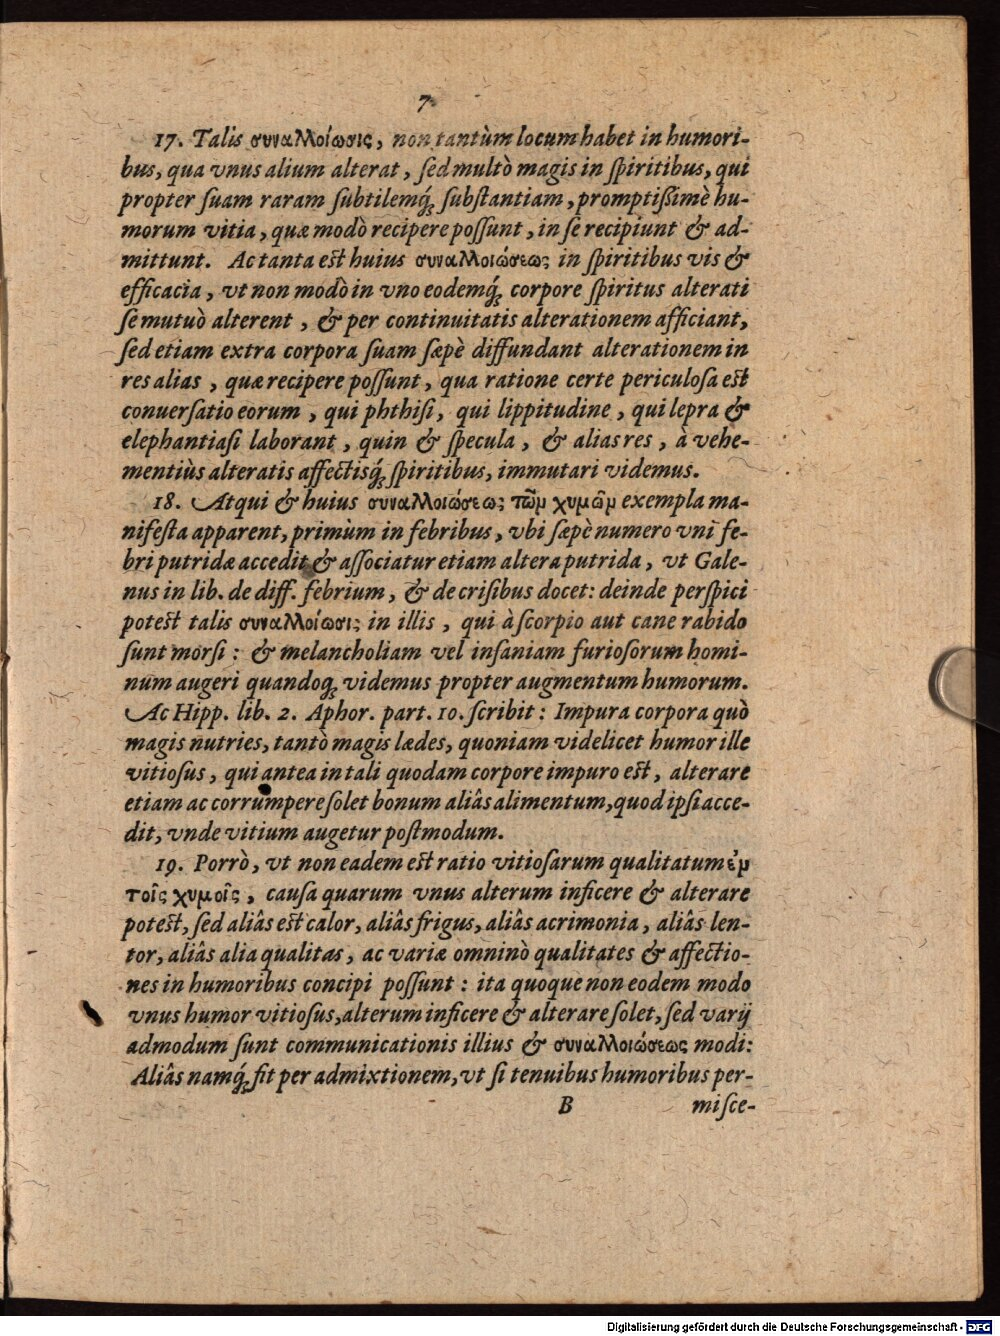 7
17. Talis συναλλοίωσις, non tantùm locum habet in humori-
bus, qua vnus alium alterat, ſed multò magis in ſpiritibus, qui
propter ſuam raram ſubtilemq́; ſubſtantiam, promptißimè hu-
morum vitia, quæ modò recipere poſſunt, in ſe recipiunt & ad-
mittunt. Ac tanta eſt huius συναλλοιώσεως in ſpiritibus vis &
efficacia, vt non modò in vno eodemq́; corpore ſpiritus alterati
ſe mutuò alterent, & per continuitatis alterationem afficiant,
ſed etiam extra corpora ſuam ſæpè diffundant alterationem in
res alias, quæ recipere poſſunt, qua ratione certe periculoſa eſt
conuerſatio eorum, qui phthiſi, qui lippitudine, qui lepra &
elephantiaſi laborant, quin & ſpecula, & alias res, à vehe-
mentiùs alteratis affectisq́; ſpiritibus, immutari videmus.
18. Atqui & huius συναλλοιώσεως τῶν χυμῶν exempla ma-
nifeſta apparent, primùm in febribus, vbi ſæpè numero vni fe-
bri putridæ accedit & aſſociatur etiam altera putrida, vt Gale-
nus in lib. de diff. febrium, & de criſibus docet: deinde perſpici
poteſt talis συναλλοίωσις in illis, qui à ſcorpio aut cane rabido
ſunt morſi: & melancholiam vel inſaniam furioſorum homi-
num augeri quandoq; videmus propter augmentum humorum.
Ac Hipp. lib. 2. Aphor. part. 10. ſcribit: Impura corpora quò
magis nutries, tantò magis lædes, quoniam videlicet humor ille
vitioſus, qui antea in tali quodam corpore impuro eſt, alterare
etiam ac corrumpere ſolet bonum aliâs alimentum, quod ipſi acce-
dit, vnde vitium augetur poſtmodum.
19. Porrò, vt non eadem eſt ratio vitioſarum qualitatum ἐν
τοῖς χυμοῖς, cauſa quarum vnus alterum inficere & alterare
poteſt, ſed aliâs eſt calor, aliâs frigus, aliâs acrimonia, aliâs len-
tor, aliâs alia qualitas, ac variæ omninò qualitates & affectio-
nes in humoribus concipi poſſunt: ita quoque non eodem modo
vnus humor vitioſus, alterum inficere & alterare ſolet, ſed varij
admodum ſunt communicationis illius & συναλλοιώσεως modi:
Aliâs namq́; fit per admixtionem, vt ſi tenuibus humoribus per-
B miſce-
Digitalisierung gefördert durch die Deutsche Forschungsgemeinschaft - DFG